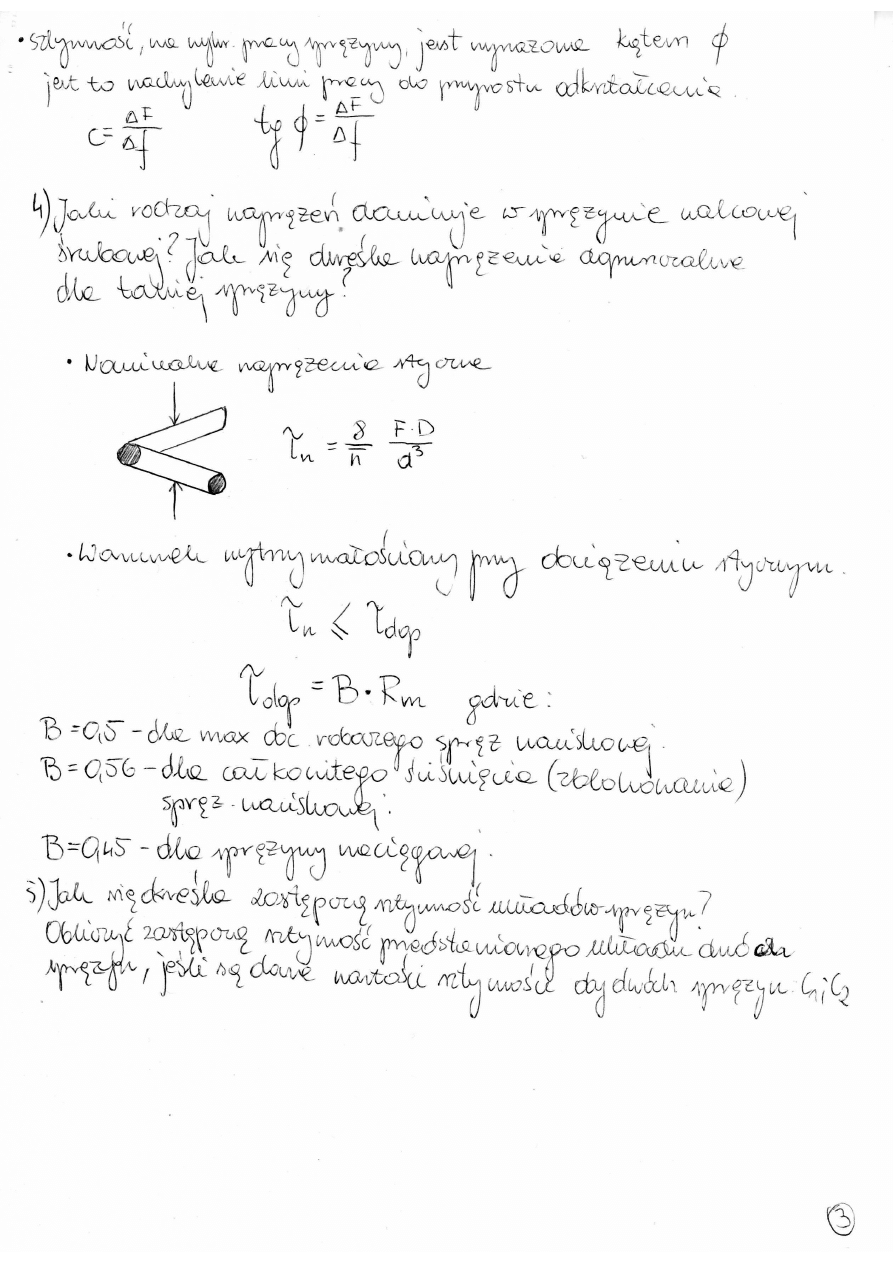 • sztywność, na wykr. pracy sprężyny, jest wyrażona kątem ϕ
jest to nachylenie linii pracy do przyrostu odkształcenia.
c = ΔF/Δf tg ϕ = ΔF/Δf
4) Jaki rodzaj naprężeń dominuje w sprężynie walcowej
śrubowej? Jak się określa naprężenie dopuszczalne
dla takiej sprężyny?
• Nominalne naprężenia styczne
τn = 8/π F·D/d³
• Warunek wytrzymałościowy przy obciążeniu stycznym.
τn ⩽ τdop
τdop = B · Rm gdzie:
B = 0,5 - dla max obc. roboczego spręż naciskowej.
B = 0,56 - dla całkowitego ściśnięcia (zblokowania)
spręż. naciskowej.
B = 0,45 - dla sprężyny naciągowej.
5) Jak się określa zastępczą sztywność układów sprężyn?
Obliczyć zastępczą sztywność przedstawionego układu dwóch
sprężyn, jeśli są dane wartości sztywności obydwóch sprężyn: C1 i C2
3